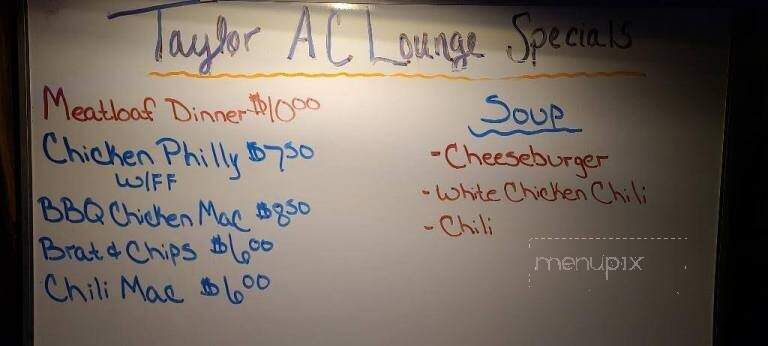 Taylor AC Lounge Specials
Meatloaf Dinner $10.00
Chicken Philly $7.50
W/FF
BBQ Chicken Mac $8.50
Brat & Chips $6.00
Chili Mac $6.00
Soup
- Cheeseburger
- White Chicken Chili
- Chili
menupix